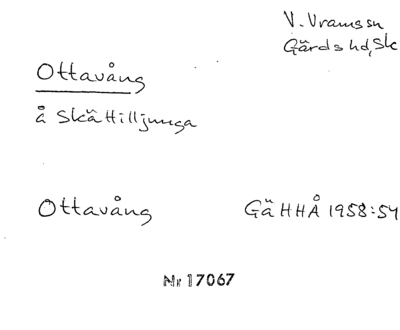 V. Vramssn
Gärds hd, Sk
Ottavång
å Skättilljunga
Ottavång GäHHÅ 1958:54
Nr 17067